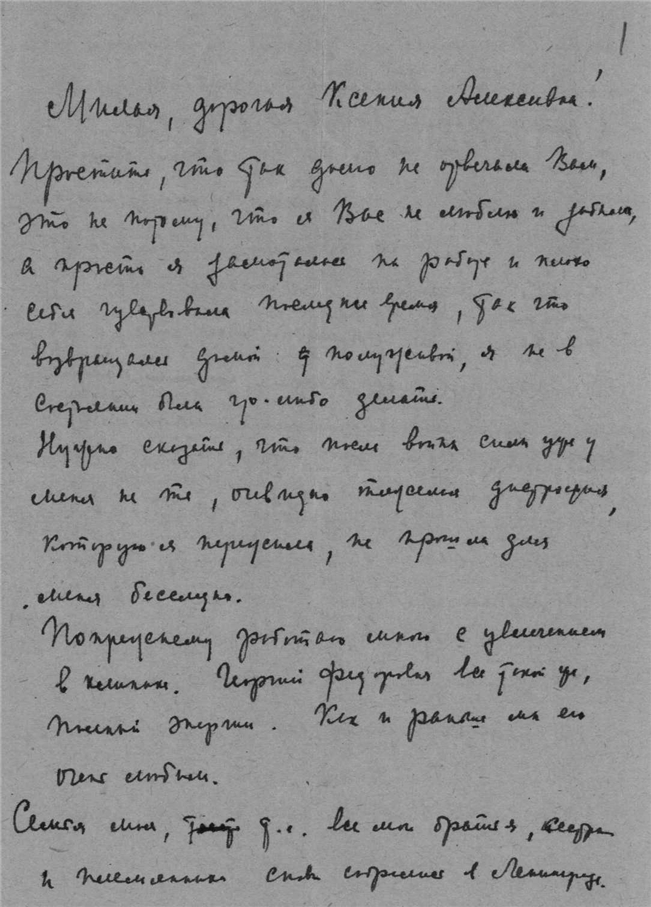 1
Милая, дорогая Ксения Алексевна!
Простите, что так долго не отвечала Вам,
это не потому, что я Вас не люблю и забыла,
а просто я замоталась на работе и плохо
себя чувствовала последнее время, так что
возвращалась домой полуживой, я не в
состоянии была что-либо делать.
Нужно сказать, что после войны силы уже у
меня не те, очевидно тяжелая дистрофия,
которую я перенесла, не прошла для
меня бесследно.
Попрежнему работаю много с увлечением
в клинике. Георгий Федорович все такой же,
полный энергии. Как и раньше мы его
очень любим.
Семья моя, т.е. все мои братья, сестры
и племянники снова собрались в Ленинграде.